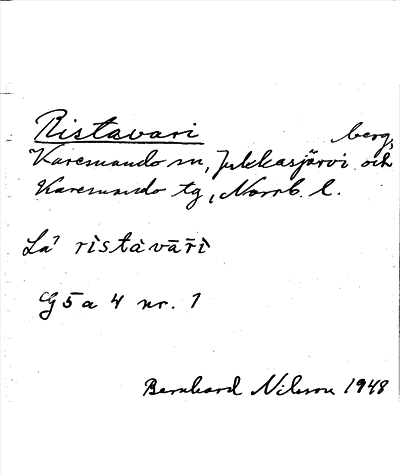 Ristavari berg,
Karesuando sn, Jukkasjärvi och
Karesuando tg, Norrb. l.
La' ri`stàvāri`
G5a 4 nr. 1
Bernhard Nilsson 1948